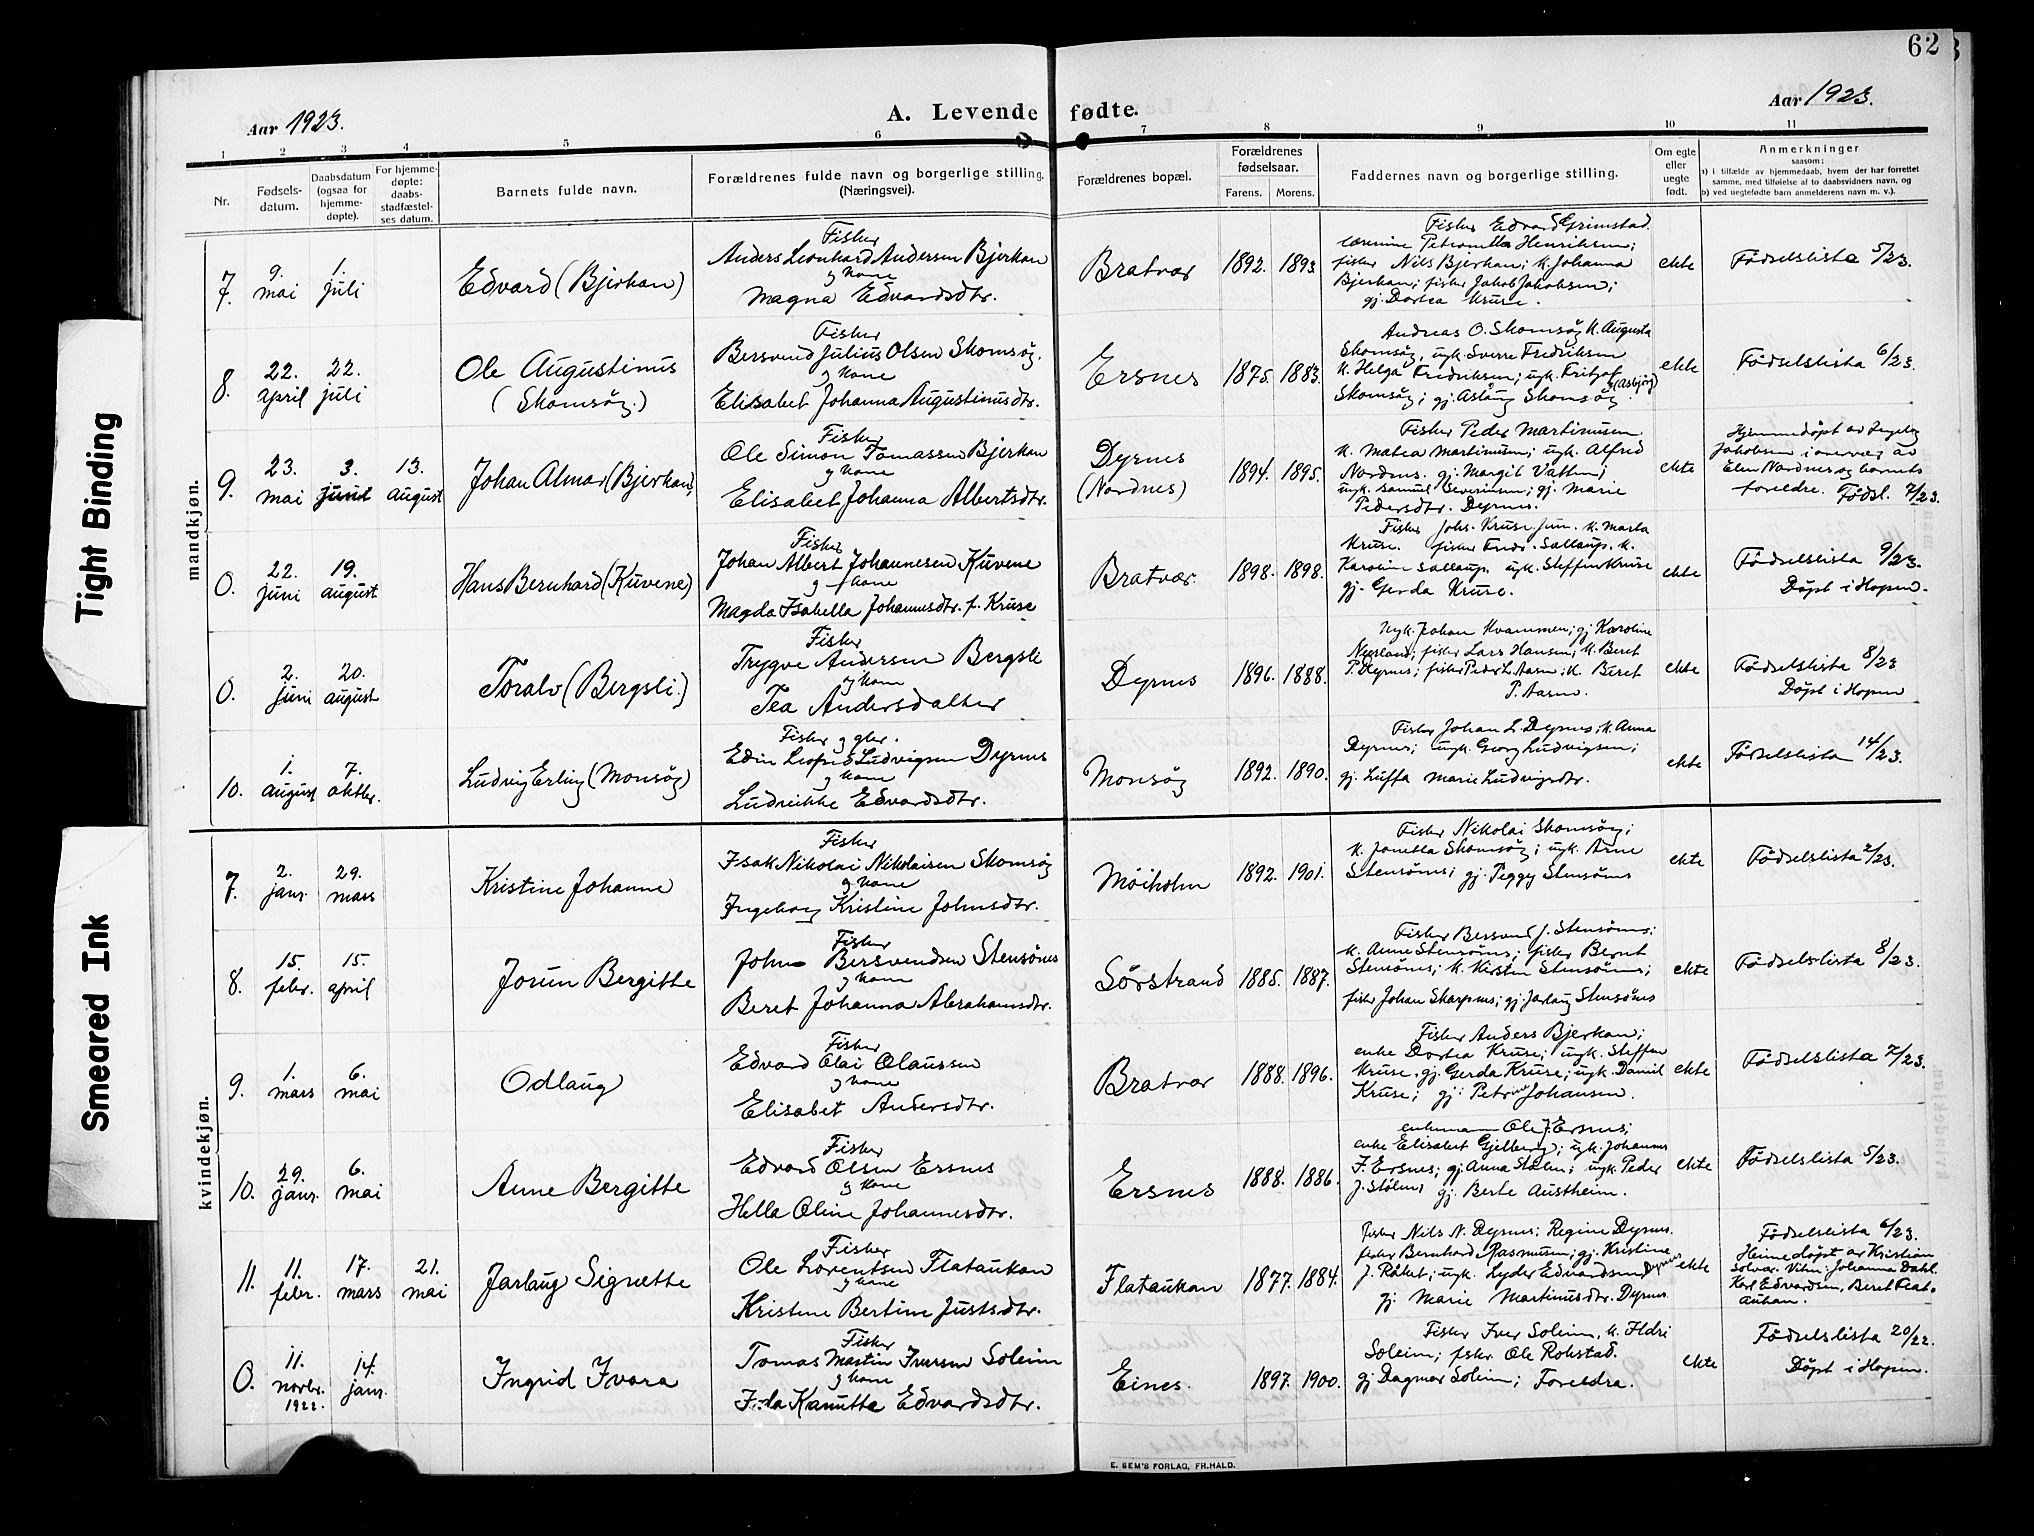 62
Aar 1923.
A. Levende fødte.
Aar 1923.
1 2 3 4 5 6 7 8 9 10 11
Nr.
Fødsels-
datum.
Daabsdatum
(ogsaa for
hjemme-
døpte).
For hjemme-
døpte:
daabs-
stadfæstel-
ses datum.
Barnets fulde navn.
Forældrenes fulde navn og borgerlige stilling.
(Næringsvei).
Forældrenes bopæl.
Forældrenes
fødselsaar.
Farens. Morens.
Faddernes navn og borgerlige stilling.
Om egte
eller
uegte
født.
Anmerkninger
saasom:
a) i tilfælde av hjemmedaab, hvem der har forrettet
samme, med tilføielse af to daabsvidners navn, og
b) ved uegtefødte barn anmelderens navn m. v.).
mandkjøn.
7.
9.
mai
1.
juli
Edvard (Bjerkan)
Fisker
Anders Leonhard Andersen Bjerkan
og kone
Magna Edvardsdtr.
Bratvær
1892. 1893
Fisker Edvard Grimstad
lærerinne Petronella Henriksen;
fisker Nils Bjerkan; k. Johanna
Bjerkan; fisker Jakob Jakobsen;
gj. Dortea Kruse.
ekte
Fødselslista 5/23.
8.
22.
april
22.
juli
Ole Augustinus
(Skomsøy.)
Fisker
Bersvend Julius Olsen Skomsøy.
og kone
Elisabet Johanna Augustinusdtr.
Ersnes
1875. 1883.
Andreas O. Skomsøy k. Augusta
Skomsøy, ugk. Sverre Fredriksen
k. Helga Fredriksen; ugk. Fritjof
Skomsøy; gj. Aslaug (Asbjørg) Skomsøy
ekte
Fødselslista 6/23.
9.
23.
mai
3.
juni
13.
august
Johan Almar (Bjerkan)
Fisker
Ole Simon Tomassen Bjerkan
og kone
Elisabet Johanna Albertsdtr.
Dyrnes
(Nordnes)
1894. 1895.
Fisker Peder Martinusen
k. Matea Martinusen; ugk. Alfred
Nordnes. gj. Margit Vatten;
ugk. Samuel Severinsen; gj. Marie
Pedersdtr. Dyrnes.
ekte
Hjemmedøpt av Ingeborg
Jakobsen i nærvær av
Elen Nordnes og barnets
foreldre. Fødsl. 7/23.
0.
22.
juni
19.
august
Hans Bernhard (Kuvene)
Fisker
Johan Albert Johannesen Kuvene
og kone
Magda Isabella Johannesdtr. f. Kruse
Bratvær.
1898. 1898.
Fisker Johs. Kruse jun. k. Marta
Kruse. fisker Fredr. Sallaup. k.
Karoline Sallaup. ugk. Steffen Kruse
gj. Gerda Kruse.
ekte
Fødselslista 9/23.
Døpt i Hopen.
0.
2.
juni
20.
august
Toralv (Bergsli.)
Fisker
Trygve Andersen Bergsli
og kone
Tea Andersdatter
Dyrnes
1896. 1888.
Ugk. Johan Kvammen; gj Karoline
Nerland; fisker Lars Hansen; k. Beret
P. Dyrnes; fisker Peder L. Aasen; k. Beret
P. Aasen.
ekte
Fødselslista 8/23
Døpt i Hopen
10.
1.
august
7.
oktbr.
Ludvig Erling (Monsøy)
Fisker og gbr.
Edin Leofred Ludvigsen Dyrnes
og kone
Ludvikke Edvardsdtr.
Monsøy
1892. 1890.
Fisker Johan L. Dyrnes; k. Anna
Dyrnes; ugk. Georg Ludvigsen;
gj. Luffa Marie Ludvigsdtr.
ekte
Fødselslista 14/23.
kvindekjøn.
7.
2.
janr.
29.
mars
Kristine Johanne
Fisker
Isak Nikolai Nikolaisen Skomsøy
og kone
Ingeborg Kristine Johnsdtr.
Møiholm
1892. 1901.
Fisker Nikolai Skomsøy;
k. Jonetta Skomsøy; ugk. Arne
Stensønes; gj. Peggy Stensønes
ekte
Fødselslista 2/23.
8.
15.
febr.
15.
april
Jorun Bergitte
Fisker
John Bersvendsen Stensønes
og kone
Beret Johanna Abrahamsdtr.
Sørstrand
1885. 1887.
Fisker Bersvend J. Stensønes;
k. Anne Stensønes; fisker Bernt
Stensønes; k. Kirsten Stensønes;
fisker Johan Skarpnes; gj. Jarlaug Stensønes
ekte
Fødselslista 8/23.
9.
1.
mars
6.
mai
Odlaug
Fisker
Edvard Olai Olaussen
og kone
Elisabet Andersdtr.
Bratvær
1888. 1896.
Fisker Anders Bjerkan;
enke Dortea Kruse; ugk. Steffen
Kruse. gj. Gerda Kruse; ugk. Daniel
Kruse; gj. Petrine Johansen.
ekte
Fødselslista 7/23.
10.
29.
janr.
6.
mai
Anne Bergitte
Fisker
Edvard Olsen Ersnes
og kone
Hella Oline Johannesdtr.
Ersnes
1888. 1886.
enkemann Ole J. Ersnes;
enke Elisabet Gjelberg; ugk. Johannes
J. Ersnes; gj. Anna Stølen; ugk. Peder
J. Stølen; gj. Berte Austheim.
ekte
Fødselslista 5/23.
11.
11.
febr.
17.
mars
21.
mai
Jarlaug Signette
Fisker
Ole Lorentsen Flataukan
og kone
Kristine Bertine Justsdtr.
Flataukan
1877. 1884.
fisker Nils N. Dyrnes; Regine Dyrnes.
fisker Bernhard Rasmussen; gj. Kristine
J. Røket; ugk. Lyder Edvardsen Dyrnes
gj Marie Martinusdtr. Dyrnes
ekte
Fødselslista 6/23.
Heimedøpt av Kristian
Solvær. Vitn: Johanna Dahl.
Karl Edvardsen, Beret Flat-
aukan.
0.
11.
novbr.
1922.
14.
janr.
Ingrid Ivara
Fisker
Tomas Martin Iversen Soleim
og kone
Ida Kanutta Edvardsdtr.
Eines.
1897. 1900.
Fisker Iver Soleim, k. Ildri
Soleim; fisker Ole Rokstad.
gj Dagmar Soleim; Foreldra.
ekte
Fødselslista 20/22.
Døpt i Hopen.
E. SEM'S FORLAG, FR.HALD.
Tight Binding
Smeared Ink